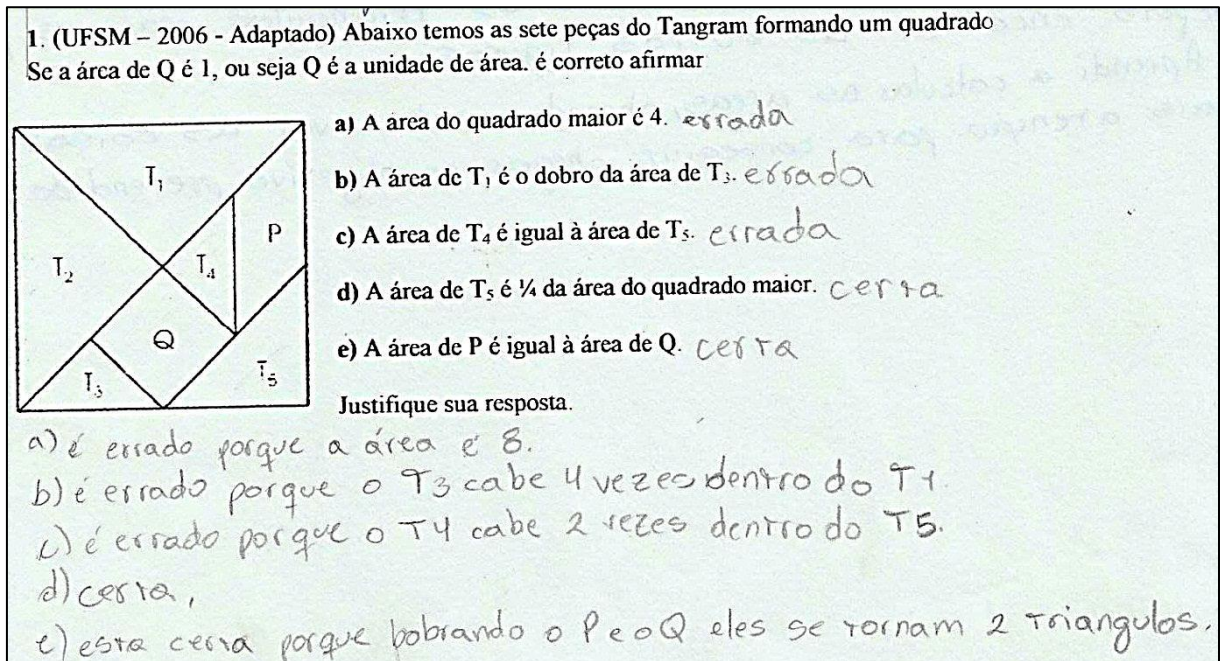 1. (UFSM – 2006 - Adaptado) Abaixo temos as sete peças do Tangram formando um quadrado
Se a área de Q é 1, ou seja Q é a unidade de área. é correto afirmar
a) A área do quadrado maior é 4. errada
b) A área de T₁ é o dobro da área de T₃. errada
c) A área de T₄ é igual à área de T₅. errada
d) A área de T₅ é ¼ da área do quadrado maior. certa
e) A área de P é igual à área de Q. certa
Justifique sua resposta.
T₁
P
T₂
T₄
Q
T₃
T₅
a) é errado porque a área é 8.
b) é errado porque o T3 cabe 4 vezes dentro do T1.
c) é errado porque o T4 cabe 2 vezes dentro do T5.
d) certa,
e) esta certa porque bobrando o P e o Q eles se tornam 2 triangulos.